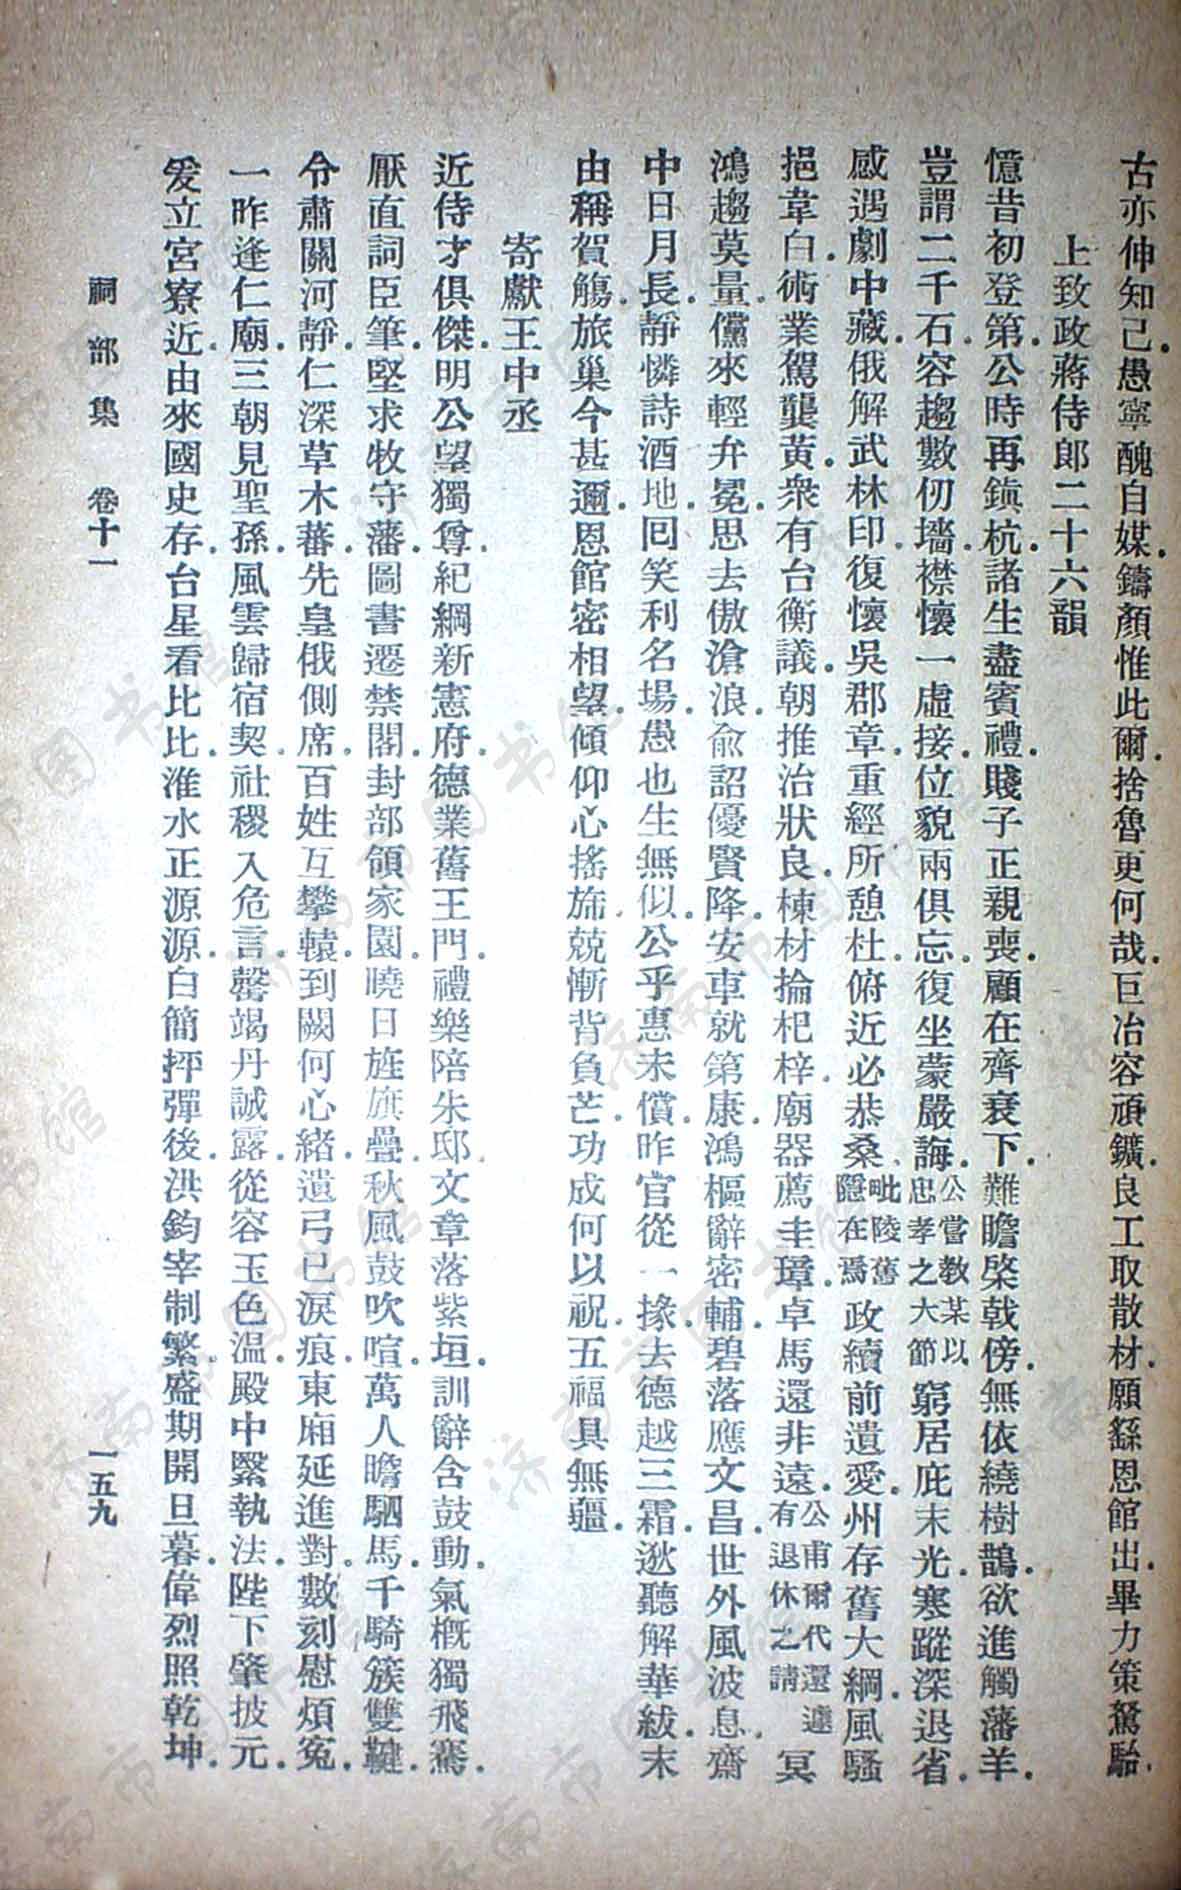 古亦伸知己愚寧醜自媒鑄顏惟此爾捨魯更何哉巨冶容頑鑛良工取散材願繇恩館出畢力策駑駘
上致政蔣侍郎二十六韻
憶昔初登第公時再鎮杭諸生盡賓禮賤子正親喪顧在齊衰下難瞻棨戟傍無依繞樹鵲欲進觸藩羊
豈謂二千石容趨數仞墻襟懷一虛接位貌兩俱忘復坐蒙嚴誨公嘗教某以忠孝之大節窮居庇末光寒蹤深退省
感遇劇中藏俄解武林印復懷吳郡章重經所憩杜俯近必恭桑毗陵舊隱在焉政續前遺愛州存舊大綱風騷
挹韋白術業駕龔黃衆有台衡議朝推治狀良棟材掄杞梓廟器薦圭璋卓馬還非遠公甫爾代還遽有退休之請冥
鴻趨莫量儻來輕弁冕思去傲滄浪俞詔優賢降安車就第康鴻樞辭密輔碧落應文昌世外風波息齋
中日月長靜憐詩酒地回笑利名場愚也生無似公乎惠未償昨官從一掾去德越三霜逖聽解華紱末
由稱賀觴旅巢今甚邇恩館密相望傾仰心搖旆兢慚背負芒功成何以祝五福具無疆
寄獻王中丞
近侍才俱傑明公望獨尊紀綱新憲府德業舊王門禮樂陪朱邸文章落紫垣訓辭含鼓動氣槪獨飛騫
厭直詞臣筆堅求牧守藩圖書遷禁閣封部領家園曉日旌旗疊秋風鼓吹喧萬人瞻駟馬千騎簇雙鞬
令肅關河靜仁深草木蕃先皇俄側席百姓互攀轅到闕何心緒遺弓已淚痕東廂延進對數刻慰煩冤
一昨逢仁廟三朝見聖孫風雲歸宿契社稷入危言罄竭丹誠露從容玉色溫殿中緊執法陛下肇披元
爰立宮寮近由來國史存台星看比比淮水正源源白簡抨彈後洪鈞宰制繁盛期開旦暮偉烈照乾坤
祠部集　卷十一　一五九